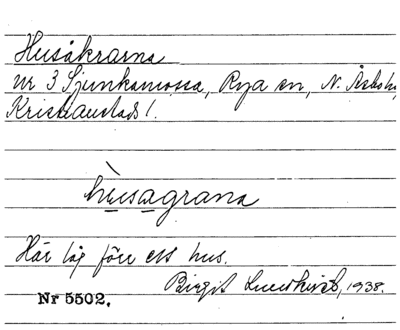 Husåkrarna
nr 3 Sjunkamossa, Rya sn, N. Åsbo hd,
Kristianstads l.
hùsagrana
Här låg förr ett hus.
Birgit Lundkvist, 1938.
Nr 5502.